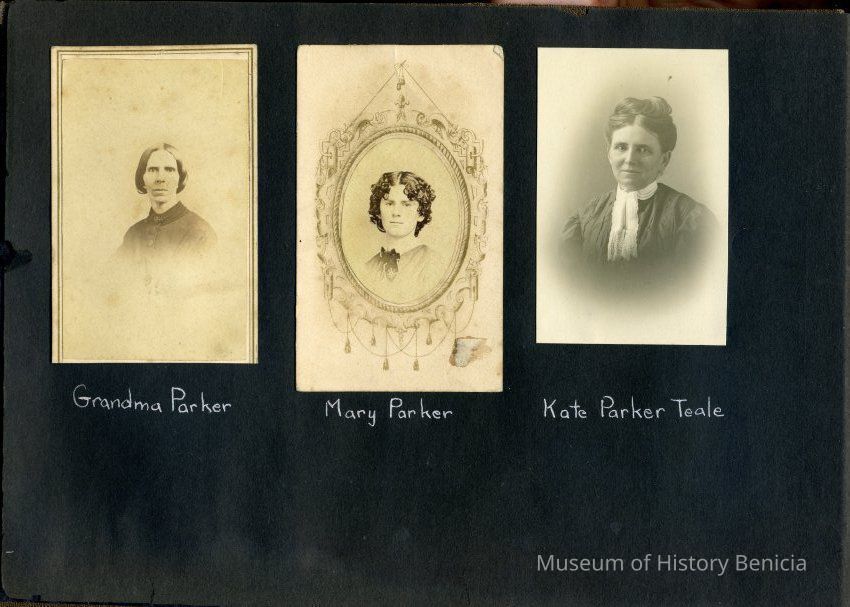 Grandma Parker
Mary Parker
Kate Parker Teale
Museum of History Benicia